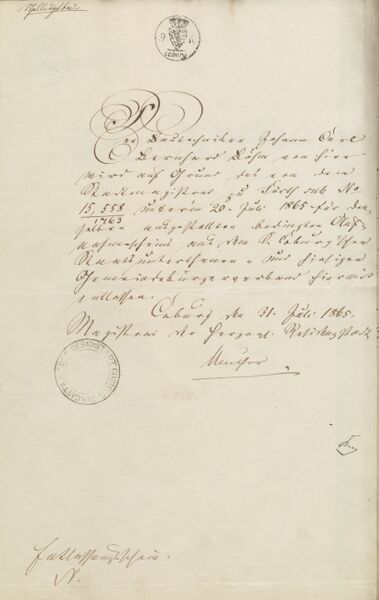 9 K
COBURG
Der Bautechniker Johann Carl
Bernhard Böhm von hier
wird auf Grund des von dem
Stadtmagistrat zu Fürth sub No
15,558/1763 unterm 20. Juli 1865 für den-
selben ausgestellten bedingten Auf-
nahmescheins aus dem S. Coburg'schen
Staatsunterthanen u. dem hiesigen
Gemeindebürgerverband hiermit
entlassen.
Coburg den 31. Juli 1865.
Magistrat der Herzogl. Residenzstadt.
Muther
Entlassungsschein.